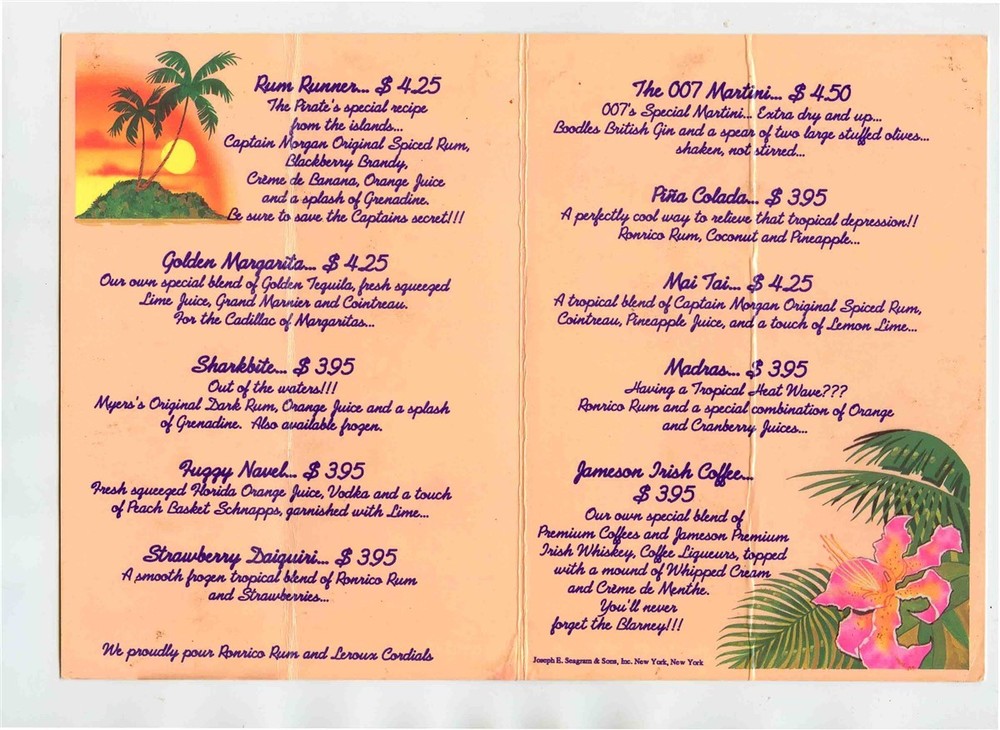 Rum Runner... $ 4.25
The Pirate's special recipe
from the islands...
Captain Morgan Original Spiced Rum,
Blackberry Brandy,
Crème de Banana, Orange Juice
and a splash of Grenadine.
Be sure to save the Captains secret!!!
Golden Margarita... $ 4.25
Our own special blend of Golden Tequila, fresh squeezed
Lime Juice, Grand Marnier and Cointreau.
For the Cadillac of Margaritas...
Sharkbite... $ 3.95
Out of the waters!!!
Myers's Original Dark Rum, Orange Juice and a splash
of Grenadine. Also available frozen.
Fuzzy Navel... $ 3.95
Fresh squeezed Florida Orange Juice, Vodka and a touch
of Peach Basket Schnapps, garnished with Lime...
Strawberry Daiquiri... $ 3.95
A smooth frozen tropical blend of Ronrico Rum
and Strawberries...
We proudly pour Ronrico Rum and Leroux Cordials
The 007 Martini... $ 4.50
007's Special Martini... Extra dry and up...
Boodles British Gin and a spear of two large stuffed olives...
shaken, not stirred...
Piña Colada... $ 3.95
A perfectly cool way to relieve that tropical depression!!
Ronrico Rum, Coconut and Pineapple...
Mai Tai... $ 4.25
A tropical blend of Captain Morgan Original Spiced Rum,
Cointreau, Pineapple Juice, and a touch of Lemon Lime...
Madras... $ 3.95
Having a Tropical Heat Wave???
Ronrico Rum and a special combination of Orange
and Cranberry Juices...
Jameson Irish Coffee...
$ 3.95
Our own special blend of
Premium Coffees and Jameson Premium
Irish Whiskey, Coffee Liqueurs, topped
with a mound of Whipped Cream
and Crème de Menthe.
You'll never
forget the Blarney!!!
Joseph E. Seagram & Sons, Inc. New York, New York